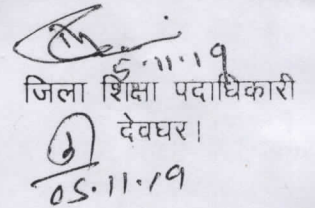 5.11.19
जिला शिक्षा पदाधिकारी
देवघर।
05.11.19